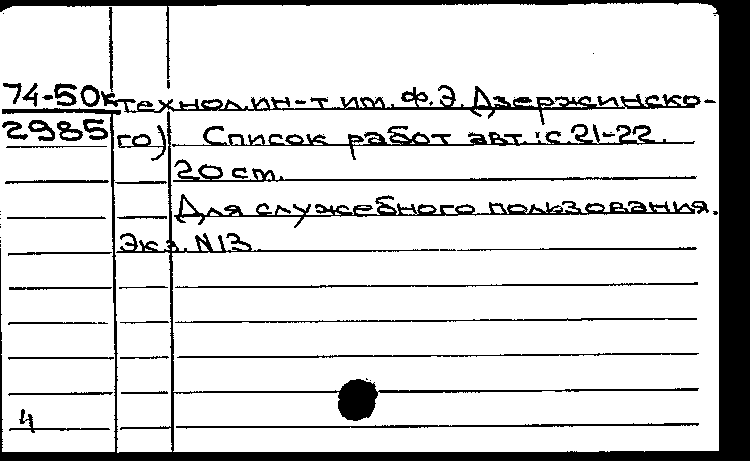 74-50к технол.ин-т им. Ф.Э. Дзержинско-
2985 го). Список работ авт.: с.21-22.
20 cm.
Для служебного пользования.
Экз. N13.
4